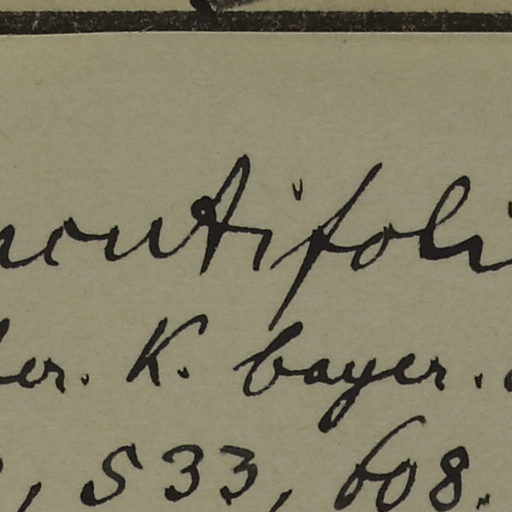 acutifoli
ber. K. bayer.
, 533, 608.